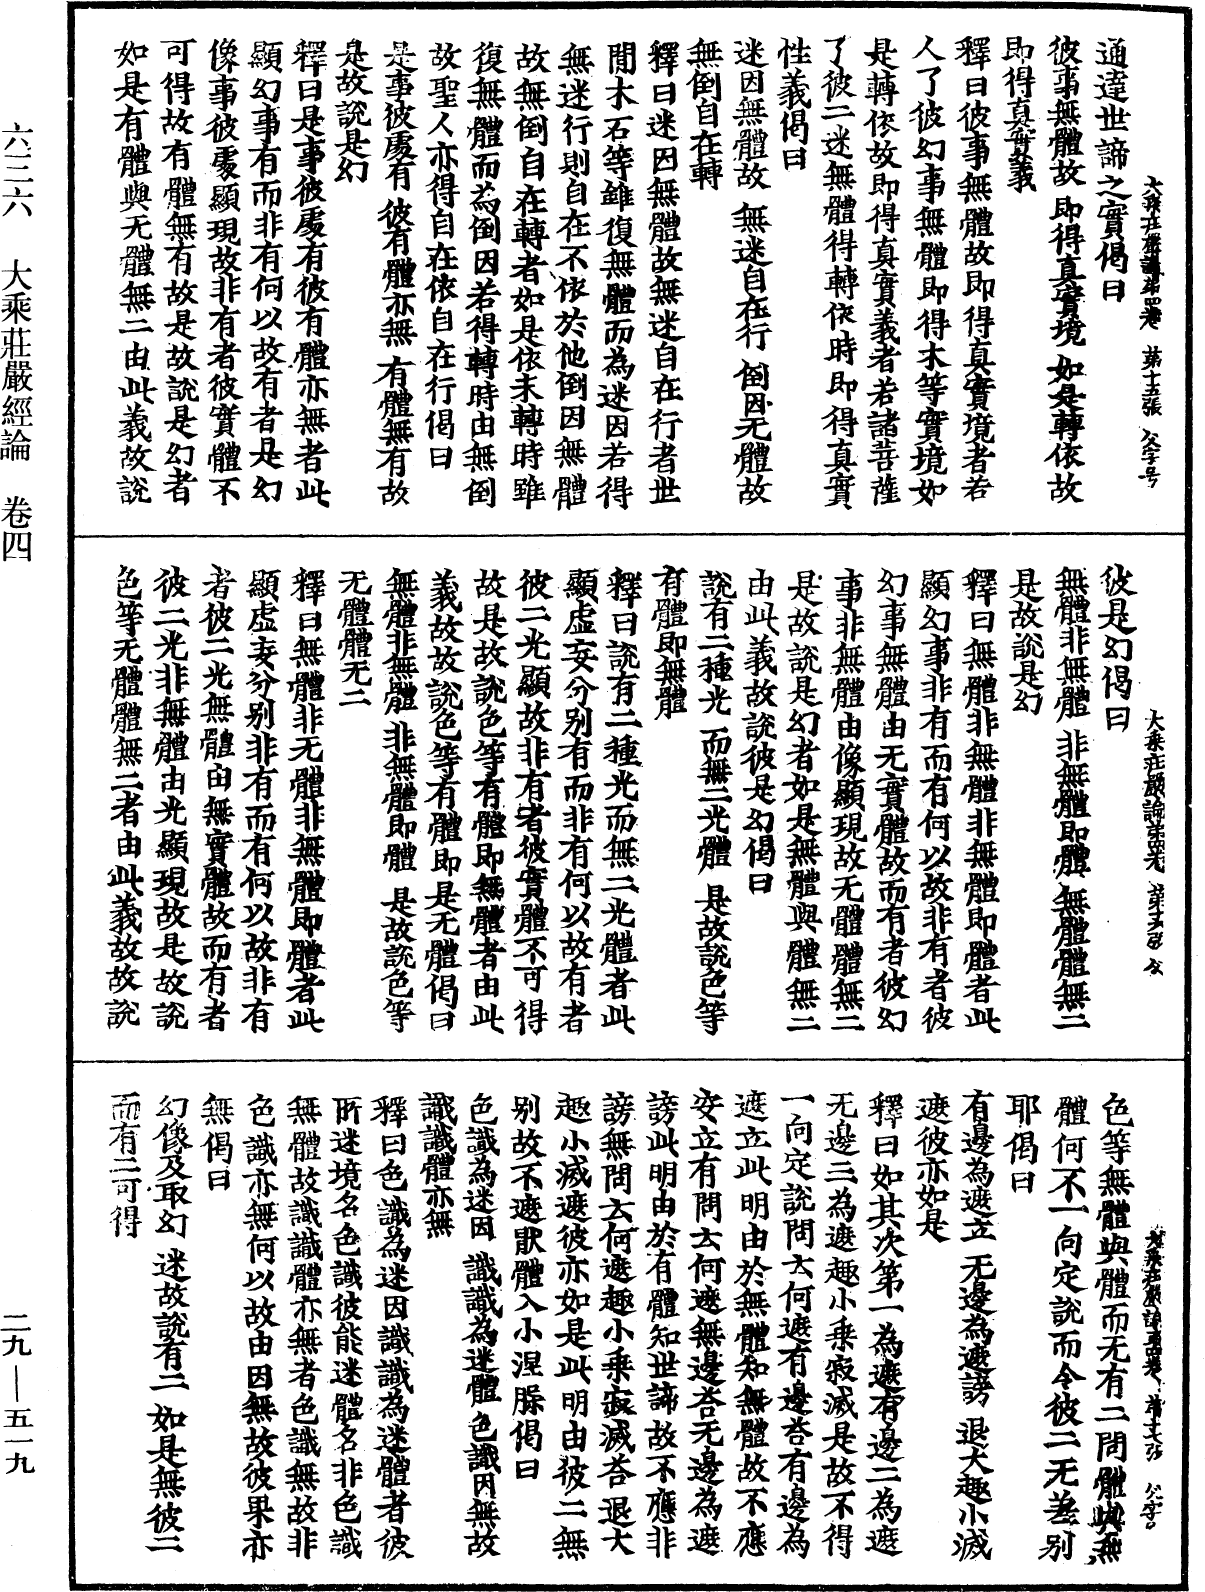 六三六　大乘莊嚴經論　卷四
二九—五一九
通達世諦之實偈曰
彼事無體故　即得真實境　如是轉依故
即得真實義
釋曰彼事無體故即得真實境者若
人了彼幻事無體即得木等實境如
是轉依故即得真實義者若諸菩薩
了彼二迷無體得轉依時即得真實
性義偈曰
迷因無體故　無迷自在行　倒因无體故
無倒自在轉
釋曰迷因無體故無迷自在行者世
間木石等雖復無體而為迷因若得
無迷行則自在不依於他倒因無體
故無倒自在轉者如是依未轉時雖
復無體而為倒因若得轉時由無倒
故聖人亦得自在依自在行偈曰
是事彼處有　彼有體亦無　有體無有故
是故說是幻
釋曰是事彼處有彼有體亦無者此
顯幻事有而非有何以故有者是幻
像事彼處顯現故非有者彼實體不
可得故有體無有故是故說是幻者
如是有體與无體無二由此義故說
大乘莊嚴論第四卷　第十五張　父字号
彼是幻偈曰
無體非無體　非無體即體　無體體無二
是故說是幻
釋曰無體非無體非無體即體者此
顯幻事非有而有何以故非有者彼
幻事無體由无實體故而有者彼幻
事非無體由像顯現故无體體無二
是故說是幻者如是無體與體無二
由此義故說彼是幻偈曰
說有二種光　而無二光體　是故說色等
有體即無體
釋曰說有二種光而無二光體者此
顯虛妄分別有而非有何以故有者
彼二光顯故非有者彼實體不可得
故是故說色等有體即無體者由此
義故故說色等有體即是无體偈曰
無體非無體　非無體即體　是故說色等
无體體无二
釋曰無體非无體非無體即體者此
顯虛妄分別非有而有何以故非有
者彼二光無體由無實體故而有者
彼二光非無體由光顯現故是故說
色等无體體無二者由此義故故說
大乘莊嚴論第四卷　第十六張　父
色等無體與體而无有二問體與無
體何不一向定說而令彼二无差別
耶偈曰
有邊為遮立　无邊為遮謗　退大趣小滅
遮彼亦如是
釋曰如其次第一為遮有邊二為遮
无邊三為遮趣小乘寂滅是故不得
一向定說問云何遮有邊荅有邊為
遮立此明由於無體知無體故不應
安立有問云何遮無邊荅无邊為遮
謗此明由於有體知世諦故不應非
謗無問云何遮趣小乘寂滅荅退大
趣小滅遮彼亦如是此明由彼二無
別故不遮猒體入小涅槃偈曰
色識為迷因　識識為迷體　色識因無故
識識體亦無
釋曰色識為迷因識識為迷體者彼
所迷境名色識彼能迷體名非色識
無體故識識體亦無者色識無故非
色識亦無何以故由因無故彼果亦
無偈曰
幻像及取幻　迷故說有二　如是無彼二
而有二可得
大乘莊嚴論第四卷　第十七張　父字号